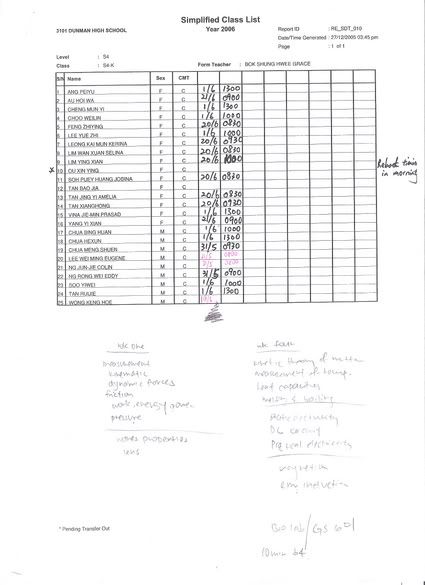 Simplified Class List
3101 DUNMAN HIGH SCHOOL
Year 2006
Report ID : RE_SDT_010
Date/Time Generated : 27/12/2005 03:45 pm
Page : 1 of 1
Level : S4
Class : S4-K
Form Teacher : BOK SHUNG HWEE GRACE
S/N Name Sex CMT
1 ANG PEIYU F C 1/6 1300
2 AU HOI WA F C 2/6 0900
3 CHENG MUN YI F C 1/6 1300
4 CHOO WEILIN F C 1/6 1000
5 FENG ZHIYING F C 20/6 0830
6 LEE YUE ZHI F C 1/6 1000
7 LEONG KAI MUN KERINA F C 20/6 0930
8 LIM WAN XUAN SELINA F C 20/6 0830
9 LIM YING XIAN F C 20/6 1000
10 OU XIN YING F C
11 SOH PUEY HUANG JOBINA F C 20/6 0830
12 TAN BAO JIA F C
13 TAN JING YI AMELIA F C 20/6 0830
14 TAN XIANGHONG F C 20/6 0900
15 VINA JIE-MIN PRASAD F C 1/6 1300
16 YANG YI XIAN F C 2/6 0900
17 CHUA BING HUAN M C 1/6 1000
18 CHUA HEXUN M C 1/6 1300
19 CHUA MENG SHUEN M C 31/5 0930
20 LEE WEI MING EUGENE M C
21 NG JUN-JIE COLIN M C
22 NG RONG WEI EDDY M C 31/5 0900
23 SOO YIWEI M C 1/6 1000
24 TAN RUIJIE M C 1/6 1300
25 WONG KENG HOE M C
Rebook timis
in morning
wk one
measurement
kinematic
dynamic forces
friction
work, energy power
pressure
waves properties
lens
wk four
kinetic theory of matter
measurement of temp.
heat capacities
melting & boiling
static electricity
DC
electricity
magnetism
em induction
Bio lab/GS
10min
* Pending Transfer Out